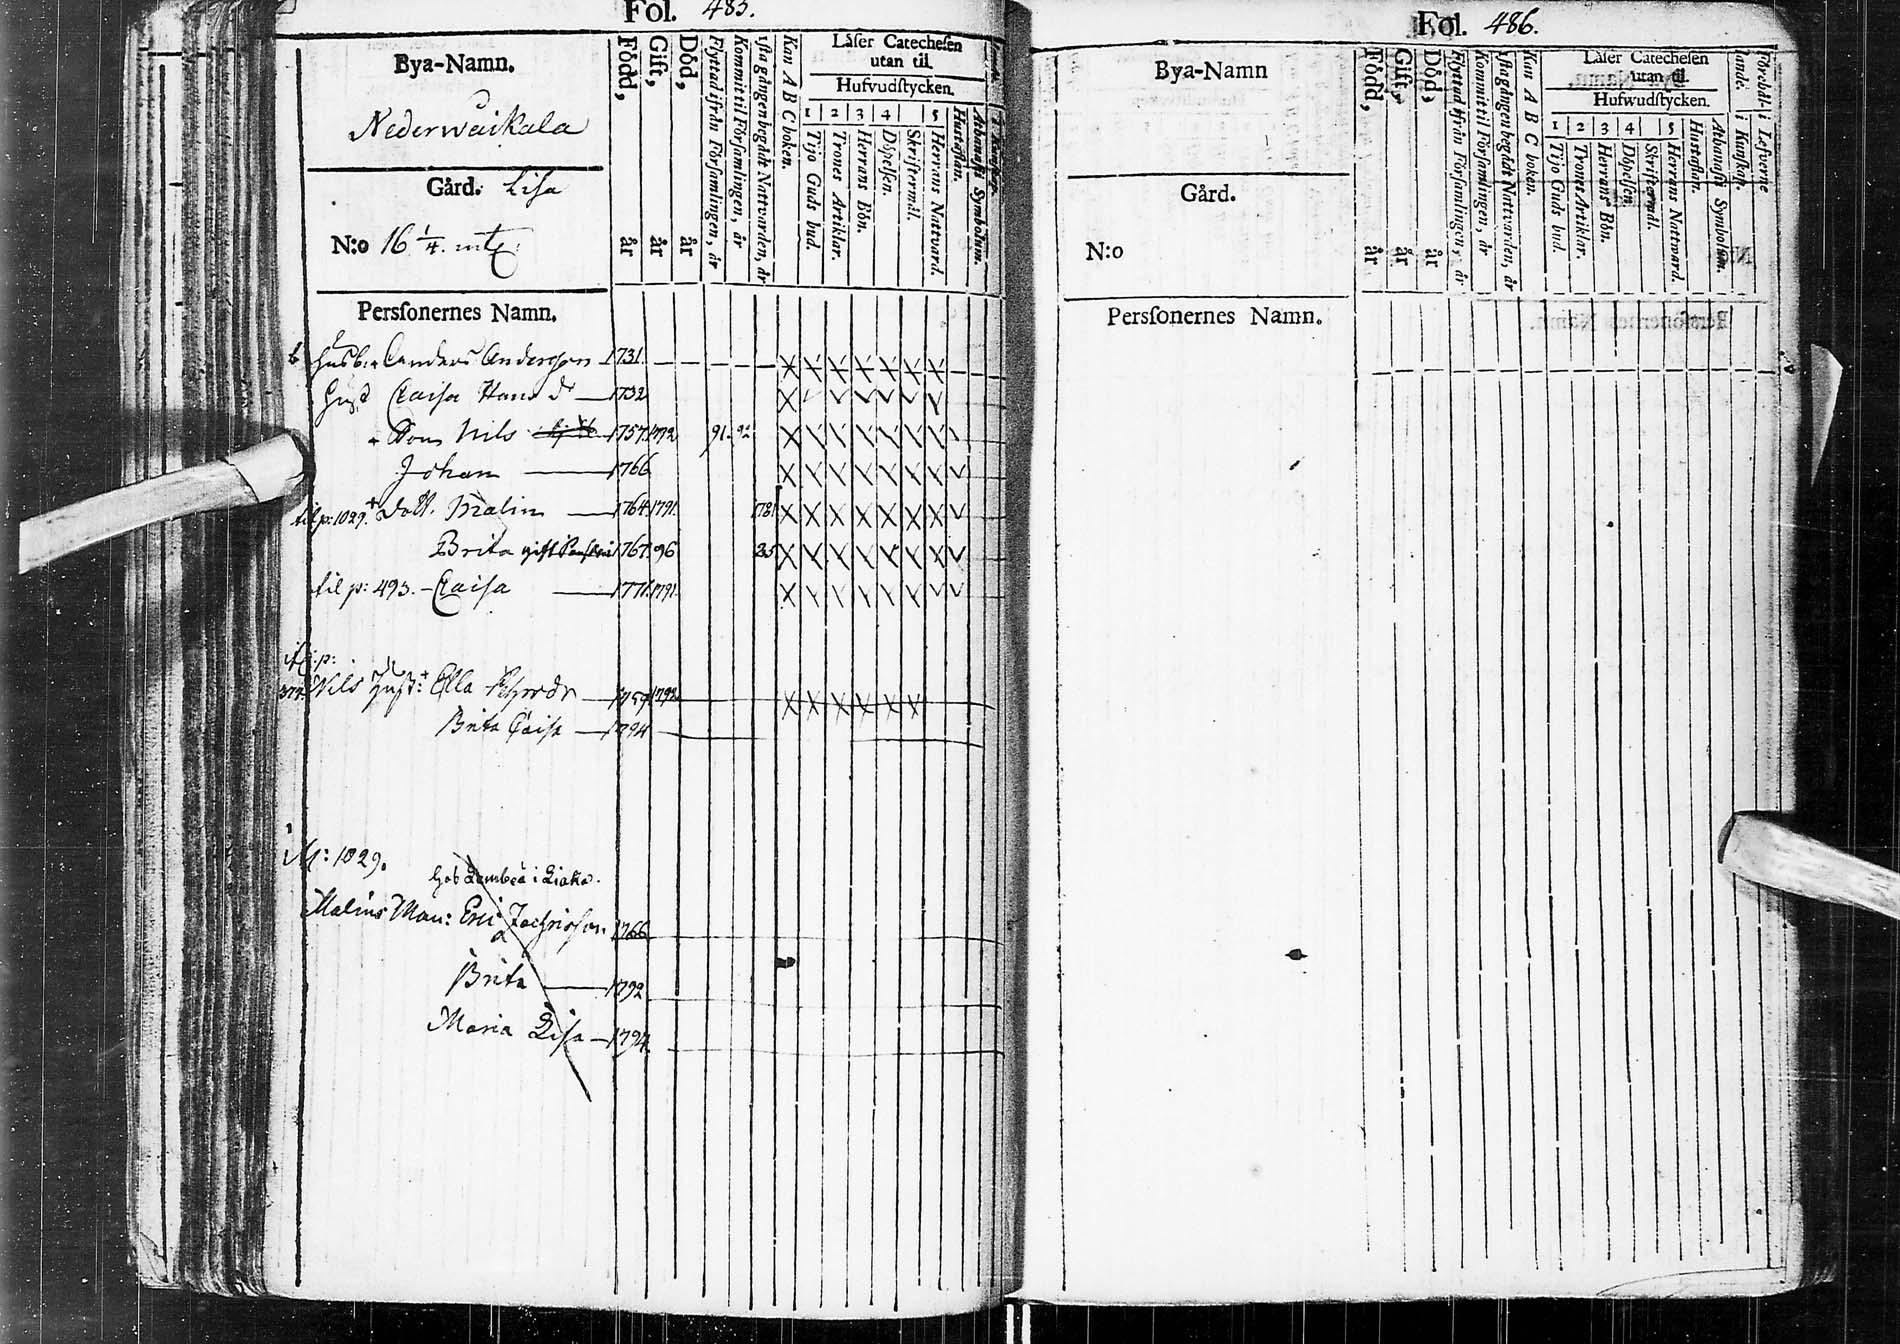 Fol. 485.
Bya-Namn.
Nederwaikala
Gård. Lisa
N:o 16 1/4. mtl:
Perſonernes Namn.
Född, år
Gift, år
Död, år
Flyttad ifrån Förſamlingen, år
Kommit til Förſamlingen, år
1ſta gången begådt Nattvarden, år
Kan A B C boken.
Läſer Catecheſen
utan til.
Hufvudſtycken.
1 2 3 4 5
Tijo Guds bud.
Trones Artiklar.
Herrans Bön.
Döpelſen.
Skriftermål.
Herrans Nattvard.
Huſtaflan.
Athanaſii Symbolum.
Husb. Anders Andersson 1731.
Hust Caisa Hans dr 1732
Son Nils 1757. 1792 91. 92
Johan 1766
til p: 1029. Dott. Malin 1764. 1791. 1781
Brita gift 1767. 96 85
til p: 493. Caisa 1771. 1791.
Nils Hust: Ella 1759 1792
Brita Caisa 1794
1029.
hos i
Malins Man: Eric Zachrisson 1766
Brita 1792
Maria Lisa 1794.
Fol. 486.
Bya-Namn
Gård.
N:o
Perſonernes Namn.
Född, år
Gift, år
Död, år
Flyttad ifrån Förſamlingen, år
Kommit til Förſamlingen, år
1ſta gången begådt Nattvarden, år
Kan A B C boken.
Läſer Catecheſen
utan til.
Hufwudſtycken.
1 2 3 4 5
Tijo Guds bud.
Trones Artiklar.
Herrans Bön.
Döpelſen.
Skriftermål.
Herrans Nattvard.
Huſtaflan.
Athanaſii Symbolum.
i Kunſkap.
i Lefverne